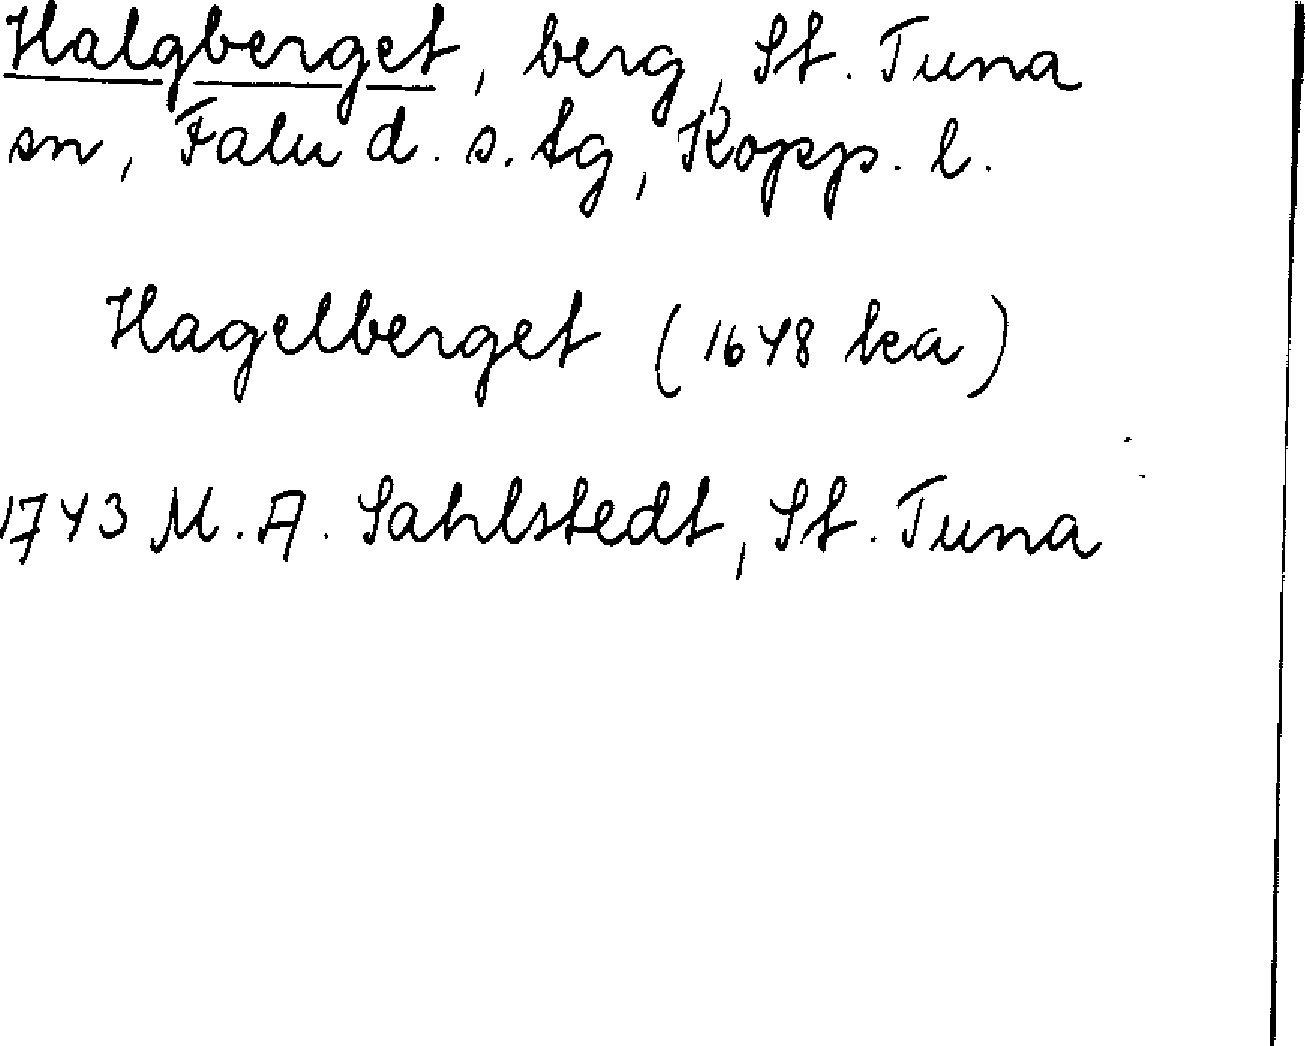 Halgberget, berg, St. Tuna
sn, Falu d. s. tg, Kopp. l.
Hagelberget (1648 ka)
1743 M. A. Sahlstedt, St. Tuna